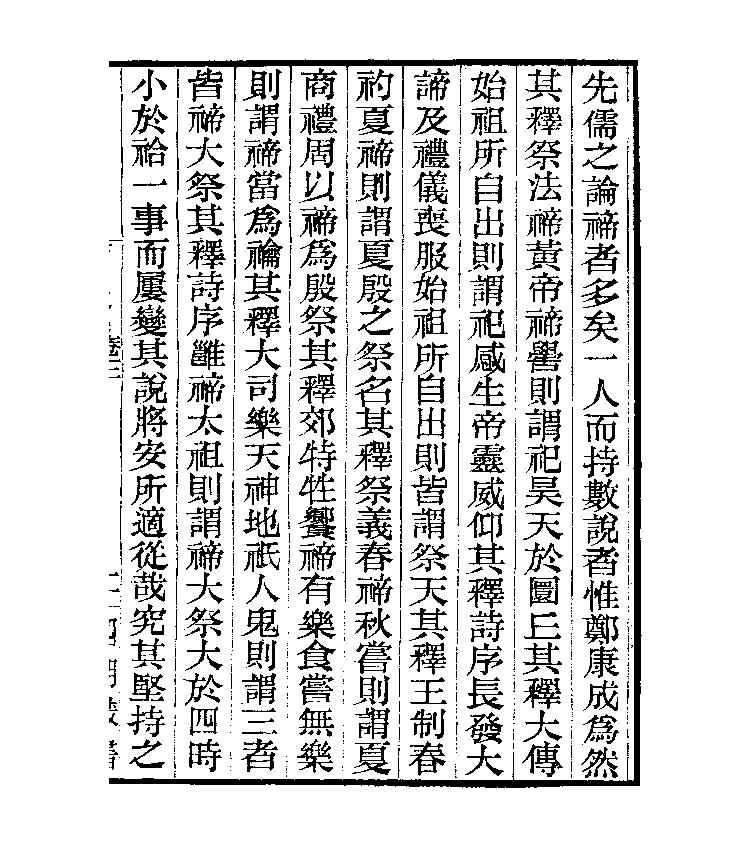 先儒之論禘者多矣一人而持數說者惟鄭康成爲然
其釋祭法禘黃帝禘嚳則謂祀昊天於圜丘其釋大傳
始祖所自出則謂祀感生帝靈威仰其釋詩序長發大
禘及禮儀喪服始祖所自出則皆謂祭天其釋王制春
礿夏禘則謂夏殷之祭名其釋祭義春禘秋嘗則謂夏
商禮周以禘爲殷祭其釋郊特牲饗禘有樂食嘗無樂
則謂禘當爲禴其釋大司樂天神地祇人鬼則謂三者
皆禘大祭其釋詩序雝禘太祖則謂禘大祭大於四時
小於祫一事而屢變其說將安所適從哉究其堅持之